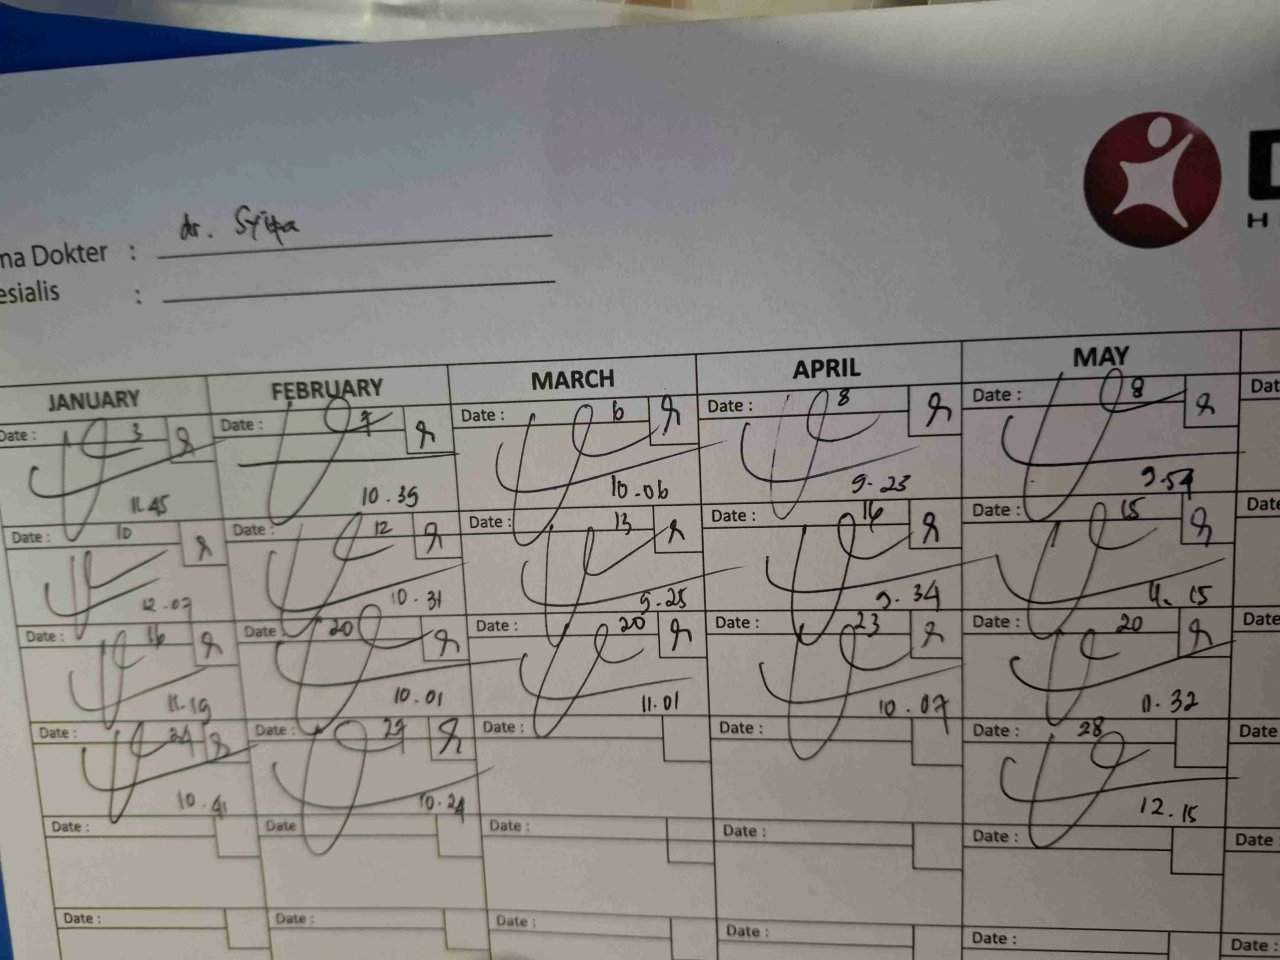 dr. Syifa
na Dokter :
esialis :
D
H
JANUARY FEBRUARY MARCH APRIL MAY
Date : 3 Date : 7 Date : 6 Date : 8 Date : 8 Dat
11.45 10.35 10.06 9.23 9.54
Date : 10 Date : 12 Date : 13 Date : 16 Date : 15 Date
12.07 10.31 9.25 9.34 15
Date : 16 Date 20 Date : 20 Date : 23 Date : 20 Date
11.19 10.01 11.01 10.07 32
Date : 24 Date : 27 Date : Date : Date : 28 Date
10.41 10.24 12.15
Date : Date Date : Date : Date : Date :
Date : Date : Date : Date : Date : Date :